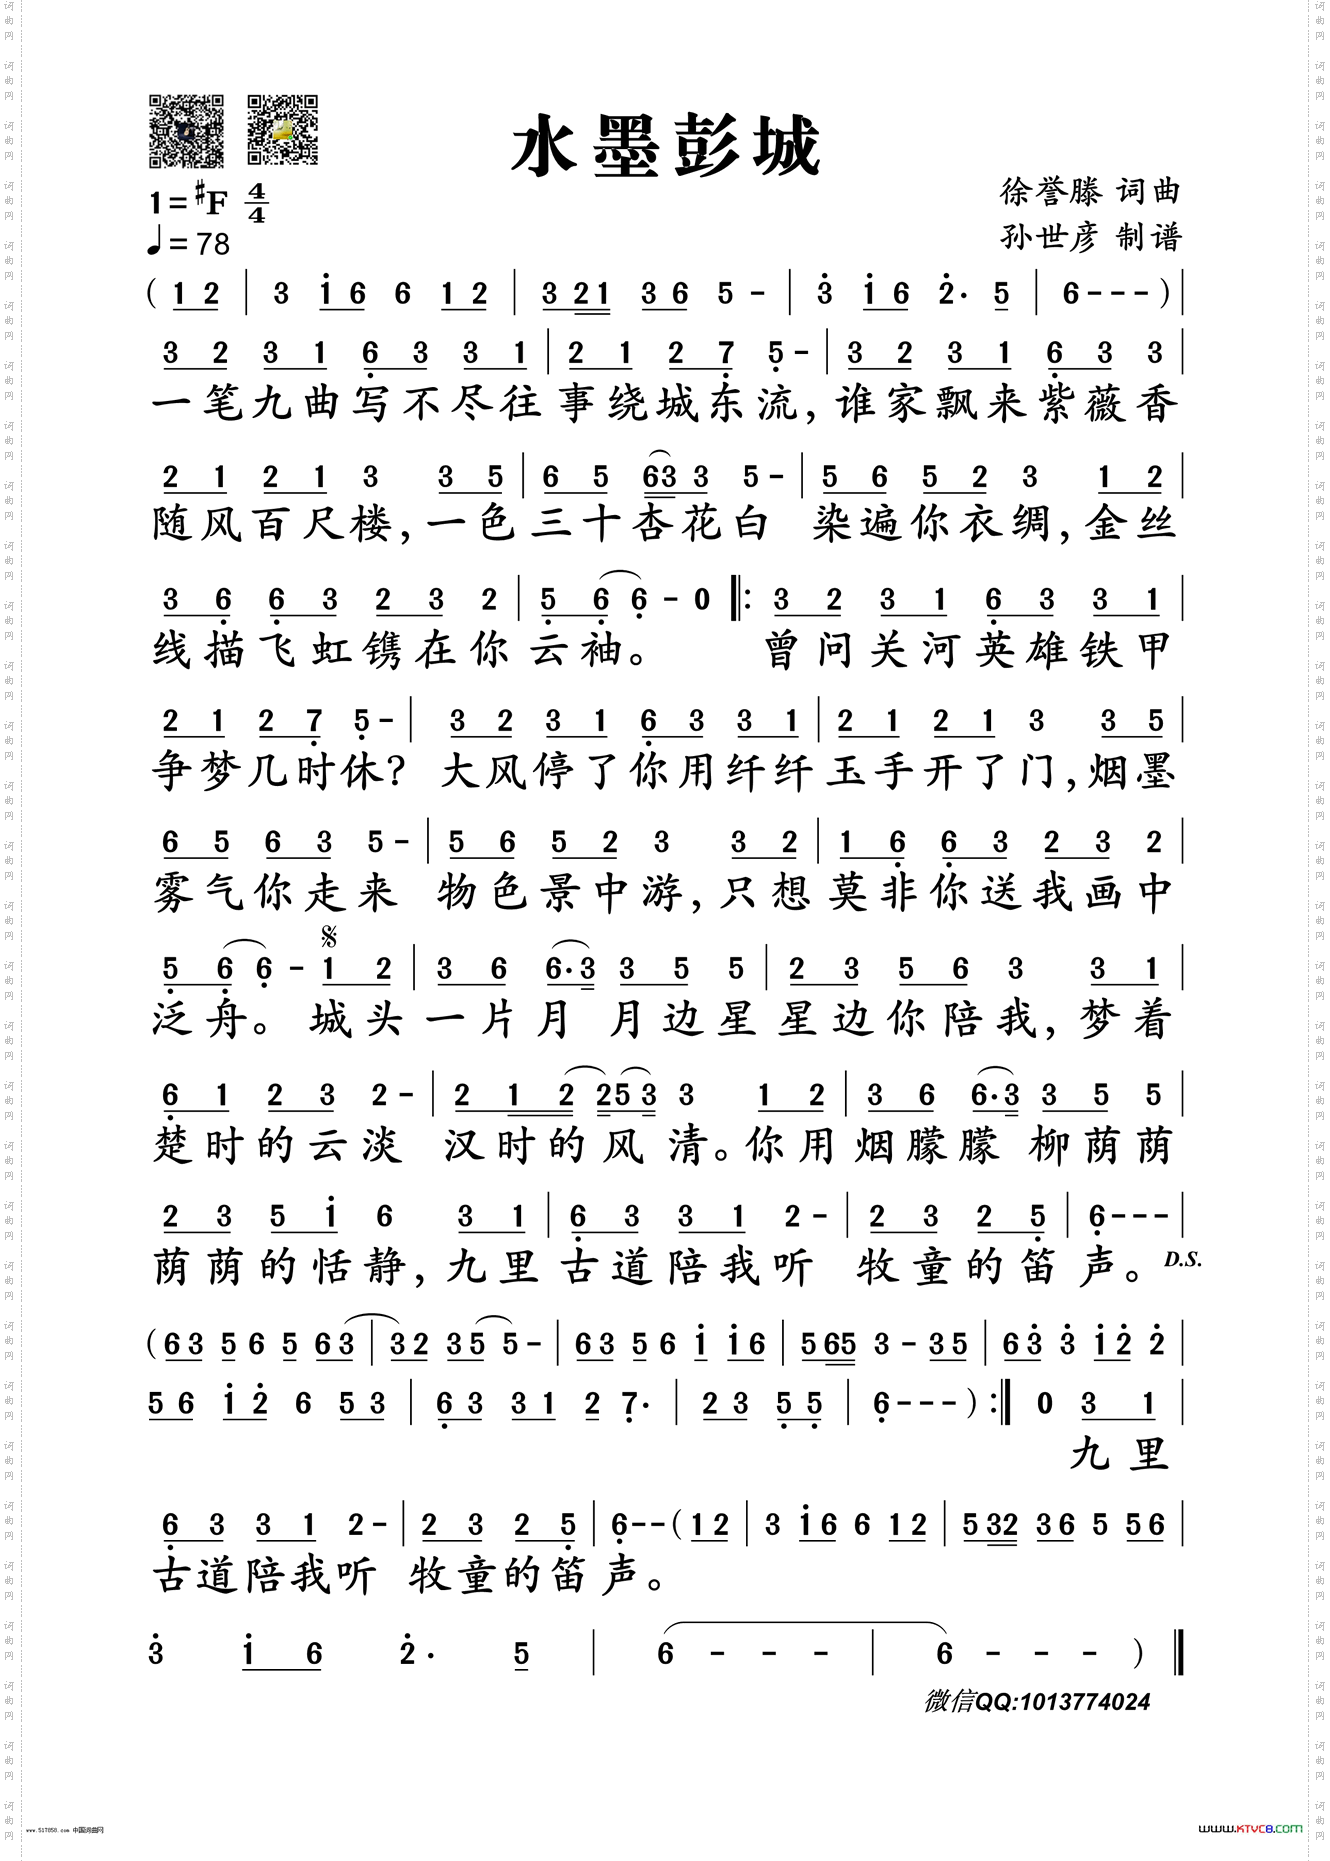 水墨彭城
1=♯F 4/4
徐誉滕 词曲
♩=78
孙世彦 制谱
( 1 2 | 3 i 6 6 1 2 | 3 2 1 3 6 5 - | 3 i 6 2 . 5 | 6 - - - ) |
3 2 3 1 6 3 3 1 | 2 1 2 7 5 - | 3 2 3 1 6 3 3 |
一笔九曲写不尽往事绕城东流,谁家飘来紫薇香
2 1 2 1 3 3 5 | 6 5 6 3 3 5 - | 5 6 5 2 3 1 2 |
随风百尺楼,一色三十杏花白 染遍你衣绸,金丝
3 6 6 3 2 3 2 | 5 6 6 - 0 ‖: 3 2 3 1 6 3 3 1 |
线描飞虹镌在你云袖。 曾问关河英雄铁甲
2 1 2 7 5 - | 3 2 3 1 6 3 3 1 | 2 1 2 1 3 3 5 |
争梦几时休? 大风停了你用纤纤玉手开了门,烟墨
6 5 6 3 5 - | 5 6 5 2 3 3 2 | 1 6 6 3 2 3 2 |
雾气你走来 物色景中游,只想莫非你送我画中
5 6 6 - 1 2 | 3 6 6 . 3 3 5 5 | 2 3 5 6 3 3 1 |
泛舟。城头一片月 月边星星边你陪我,梦着
6 1 2 3 2 - | 2 1 2 2 5 3 3 1 2 | 3 6 6 . 3 3 5 5 |
楚时的云淡 汉时的风清。你用烟朦朦 柳荫荫
2 3 5 i 6 3 1 | 6 3 3 1 2 - | 2 3 2 5 | 6 - - - |
荫荫的恬静,九里古道陪我听 牧童的笛声。 D.S.
( 6 3 5 6 5 6 3 | 3 2 3 5 5 - | 6 3 5 6 i i 6 | 5 6 5 3 - 3 5 | 6 3 3 i 2 2 |
5 6 i 2 6 5 3 | 6 3 3 1 2 7 . | 2 3 5 5 | 6 - - - ) :‖ 0 3 1 |
九里
6 3 3 1 2 - | 2 3 2 5 | 6 - - ( 1 2 | 3 i 6 6 1 2 | 5 3 2 3 6 5 5 6 |
古道陪我听 牧童的笛声。
3 i 6 2 . 5 | 6 - - - | 6 - - - ) ‖
微信QQ:1013774024
www.517858.com 中国词曲网
www.KTVC8.com